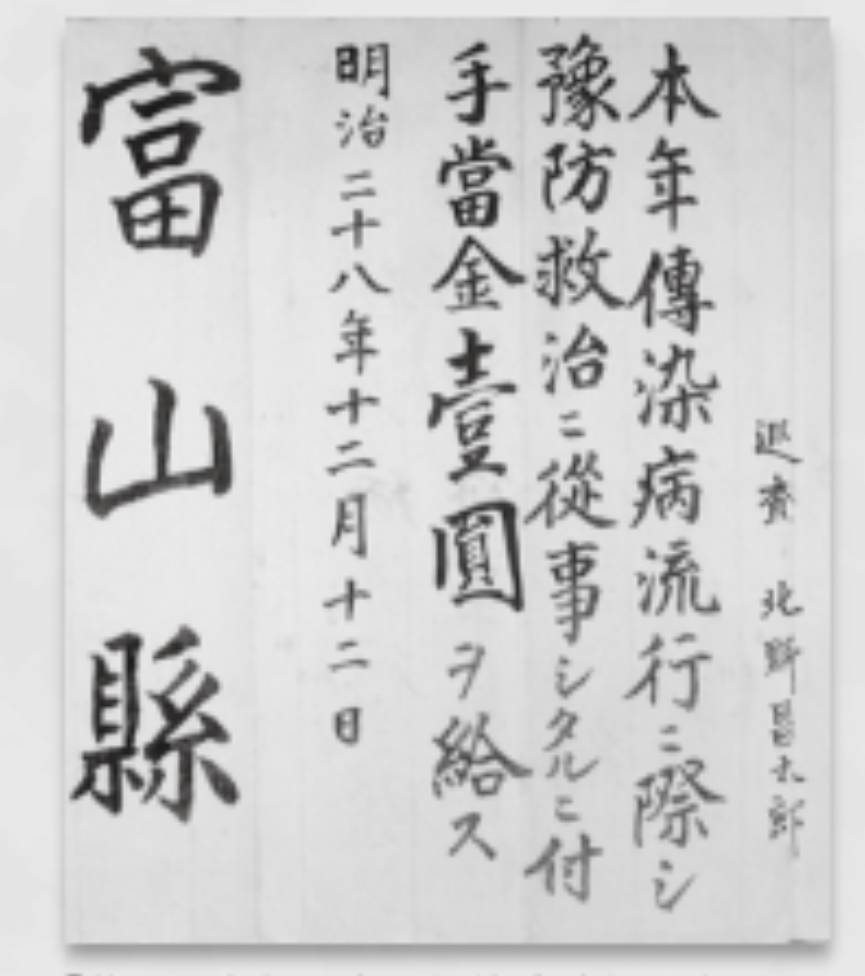 北野昌太郎
本年傳染病流行ニ際シ
豫防救治ニ從事シタルニ付
手當金壹圓ヲ給ス
明治二十八年十二月十二日
富山縣